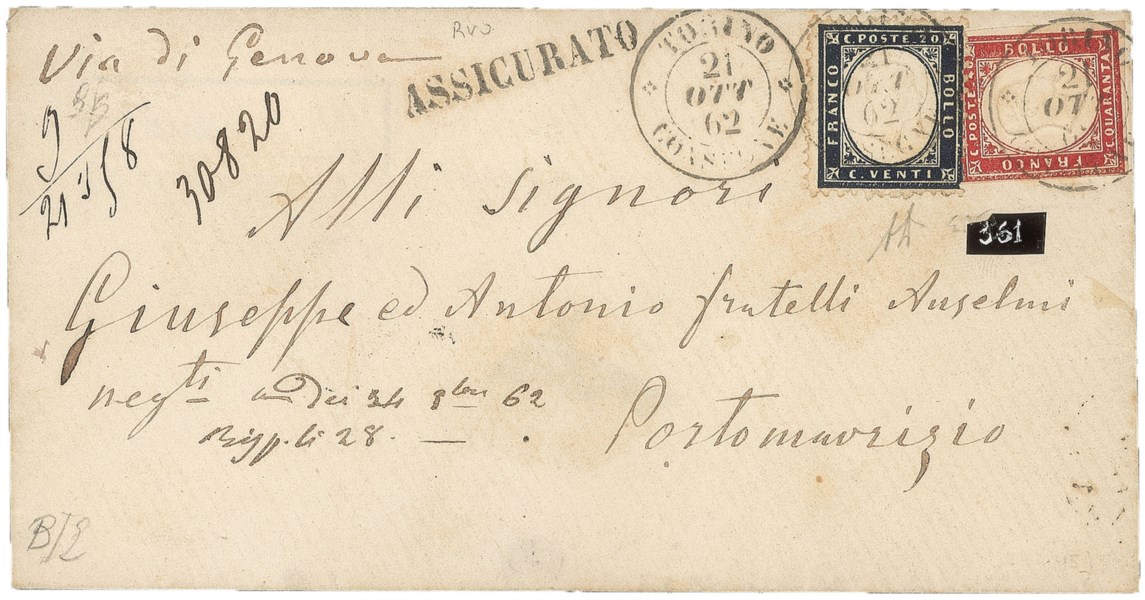 RVO
Via di Genova
ASSICURATO
TORINO
21
OTT
62
CONSEGNE
C. POSTE. 20
FRANCO
BOLLO
C. VENTI
BOLLO
C. POSTE. 40
C. QUARANTA
FRANCO
9
21
58
30820
Alli Signori
361
Giuseppe ed Antonio fratelli Anselmi
negti 24 8bre 62
28.
Portomaurizio
B/E